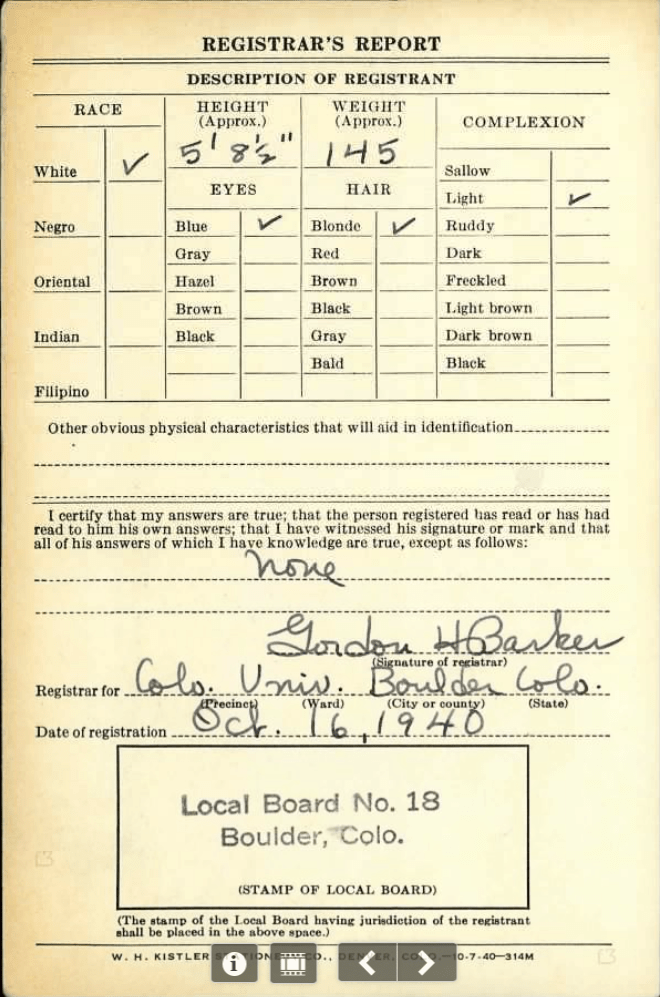 REGISTRAR'S REPORT
DESCRIPTION OF REGISTRANT
RACE
HEIGHT
(Approx.)
WEIGHT
(Approx.)
COMPLEXION
5' 8½"
145
White ✓
EYES
HAIR
Sallow
Light ✓
Negro
Blue ✓
Blonde ✓
Ruddy
Gray
Red
Dark
Oriental
Hazel
Brown
Freckled
Brown
Black
Light brown
Indian
Black
Gray
Dark brown
Bald
Black
Filipino
Other obvious physical characteristics that will aid in identification
I certify that my answers are true; that the person registered has read or has had
read to him his own answers; that I have witnessed his signature or mark and that
all of his answers of which I have knowledge are true, except as follows:
None
Gordon H Barker
(Signature of registrar)
Registrar for Colo. Univ. Boulder Colo.
(Precinct) (Ward) (City or county) (State)
Date of registration Oct. 16, 1940
Local Board No. 18
Boulder, Colo.
(STAMP OF LOCAL BOARD)
(The stamp of the Local Board having jurisdiction of the registrant
shall be placed in the above space.)
W. H. KISTLER CO., 10-7-40—314M